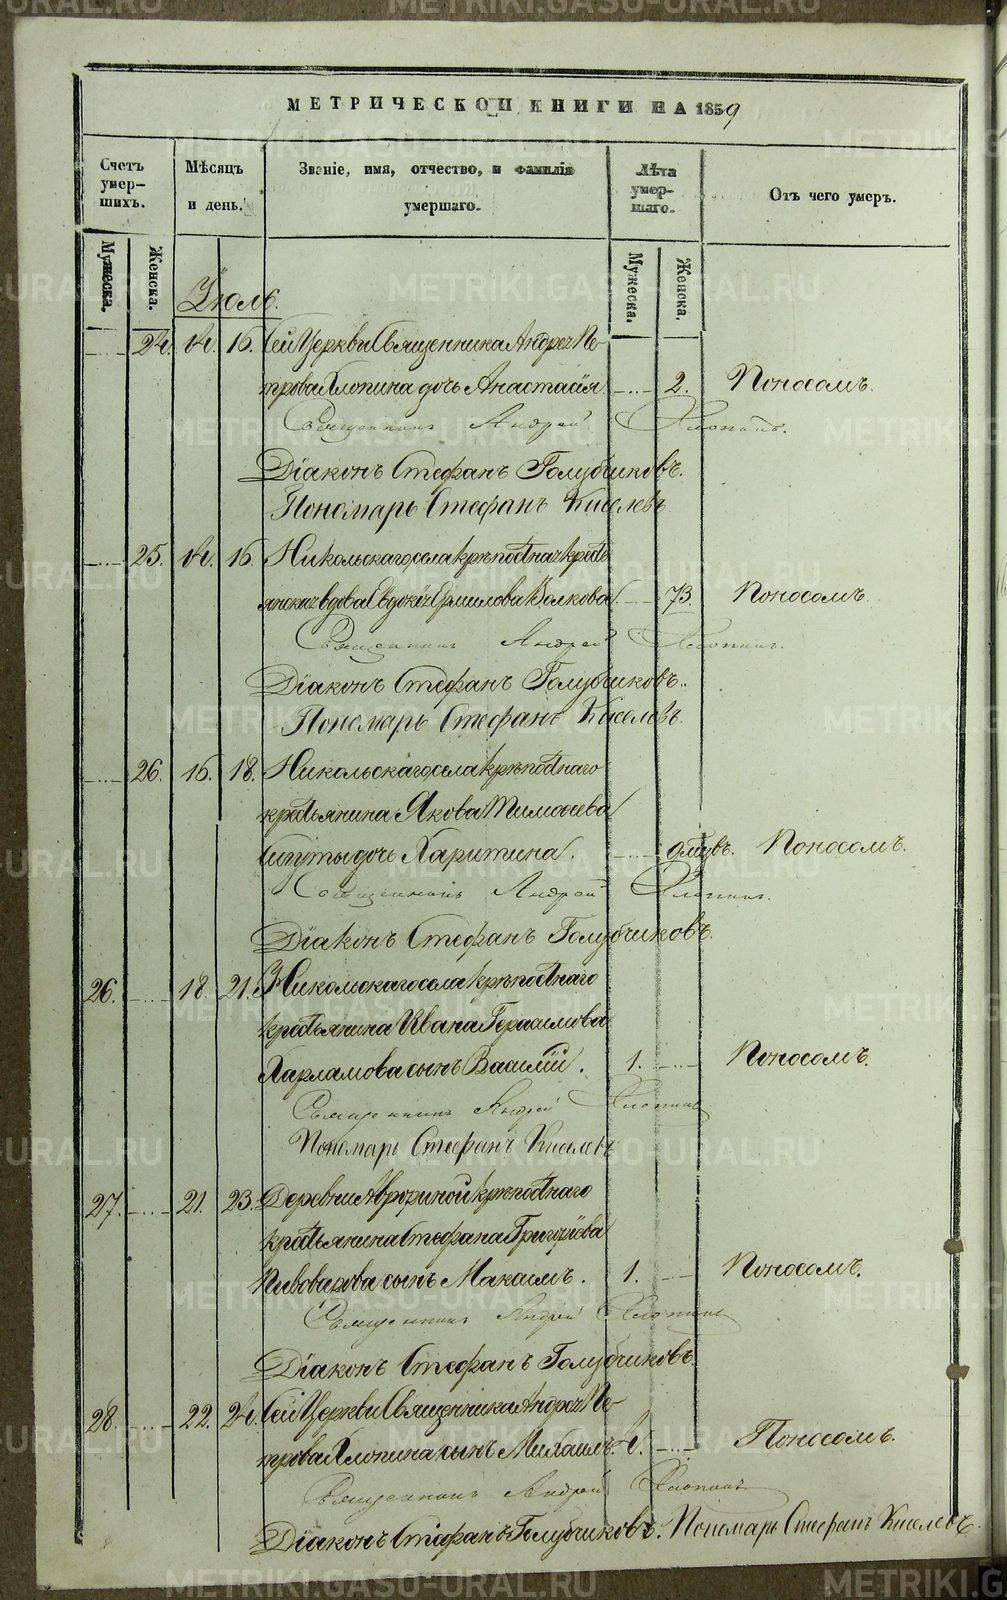 МЕТРИЧЕСКОЙ КНИГИ НА 1859
Счетъ умер-шихъ.
Мѣсяцъ и день.
Званіе, имя, отчество, и фамилія умершаго.
Лѣта умер-шаго.
Отъ чего умеръ.
Мужеска.
Женска.
Мужеска.
Женска.
Іюль.
16. Сей Церкви Священника Андрея Пе-
трова Хлопина дочь Анастасія 2. Поносомъ.
Священникъ Андрей Хлопинъ.
Діаконъ Стефанъ Голубчиковъ.
Пономарь Стефанъ Киселевъ
25. 16. Никольскаго села крѣпостная кресть
янская вдова Евдокія Ермилова Волкова. 73. Поносомъ.
Священникъ Андрей Хлопинъ.
Діаконъ Стефанъ Голубчиковъ.
Пономарь Стефанъ Киселевъ.
26. 16. 18. Никольскаго села крѣпостнаго
крестьянина Якова Тимофеева
дочь Харитина. Поносомъ.
Священникъ Андрей Хлопинъ.
Діаконъ Стефанъ Голубчиковъ.
26. 18. 21. Никольскаго села крѣпостнаго
крестьянина Ивана Герасимова
Харламова сынъ Василій. 1. Поносомъ.
Священникъ Андрей Хлопинъ
Пономарь Стефанъ Киселевъ
27. 21. 23. Деревни Аврориной крѣпостнаго
крестьянина Стефана Григорьева
Пивоварова сынъ Максимъ. 1. Поносомъ.
Священникъ Андрей Хлопинъ
Діаконъ Стефанъ Голубчиковъ.
28. 22. Сей Церкви Священника Андрея Пе-
трова Хлопина сынъ Михаилъ. Поносомъ.
Священникъ Андрей Хлопинъ
Діаконъ Стефанъ Голубчиковъ. Пономарь Стефанъ Киселевъ.
METRIKI.GASO-URAL.RU